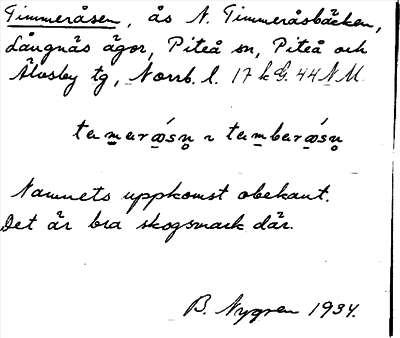 Timmeråsen, ås N. Timmeråsbäcken,
Långnäs ägor, Piteå sn, Piteå och
Älvsby tg, Norrb. l. 17 k G. 44 NM.
Namnets uppkomst obekant.
Det är bra skogsmark där.
B. Nygren 1934.